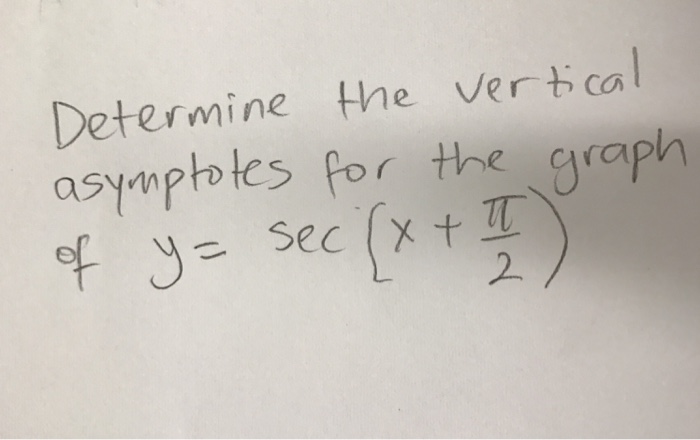 Determine the vertical
asymptotes for the graph
of y = sec(x + π/2)